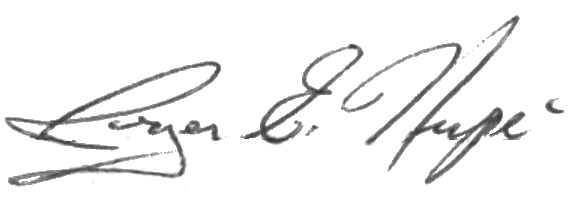 Roger E. Hupé